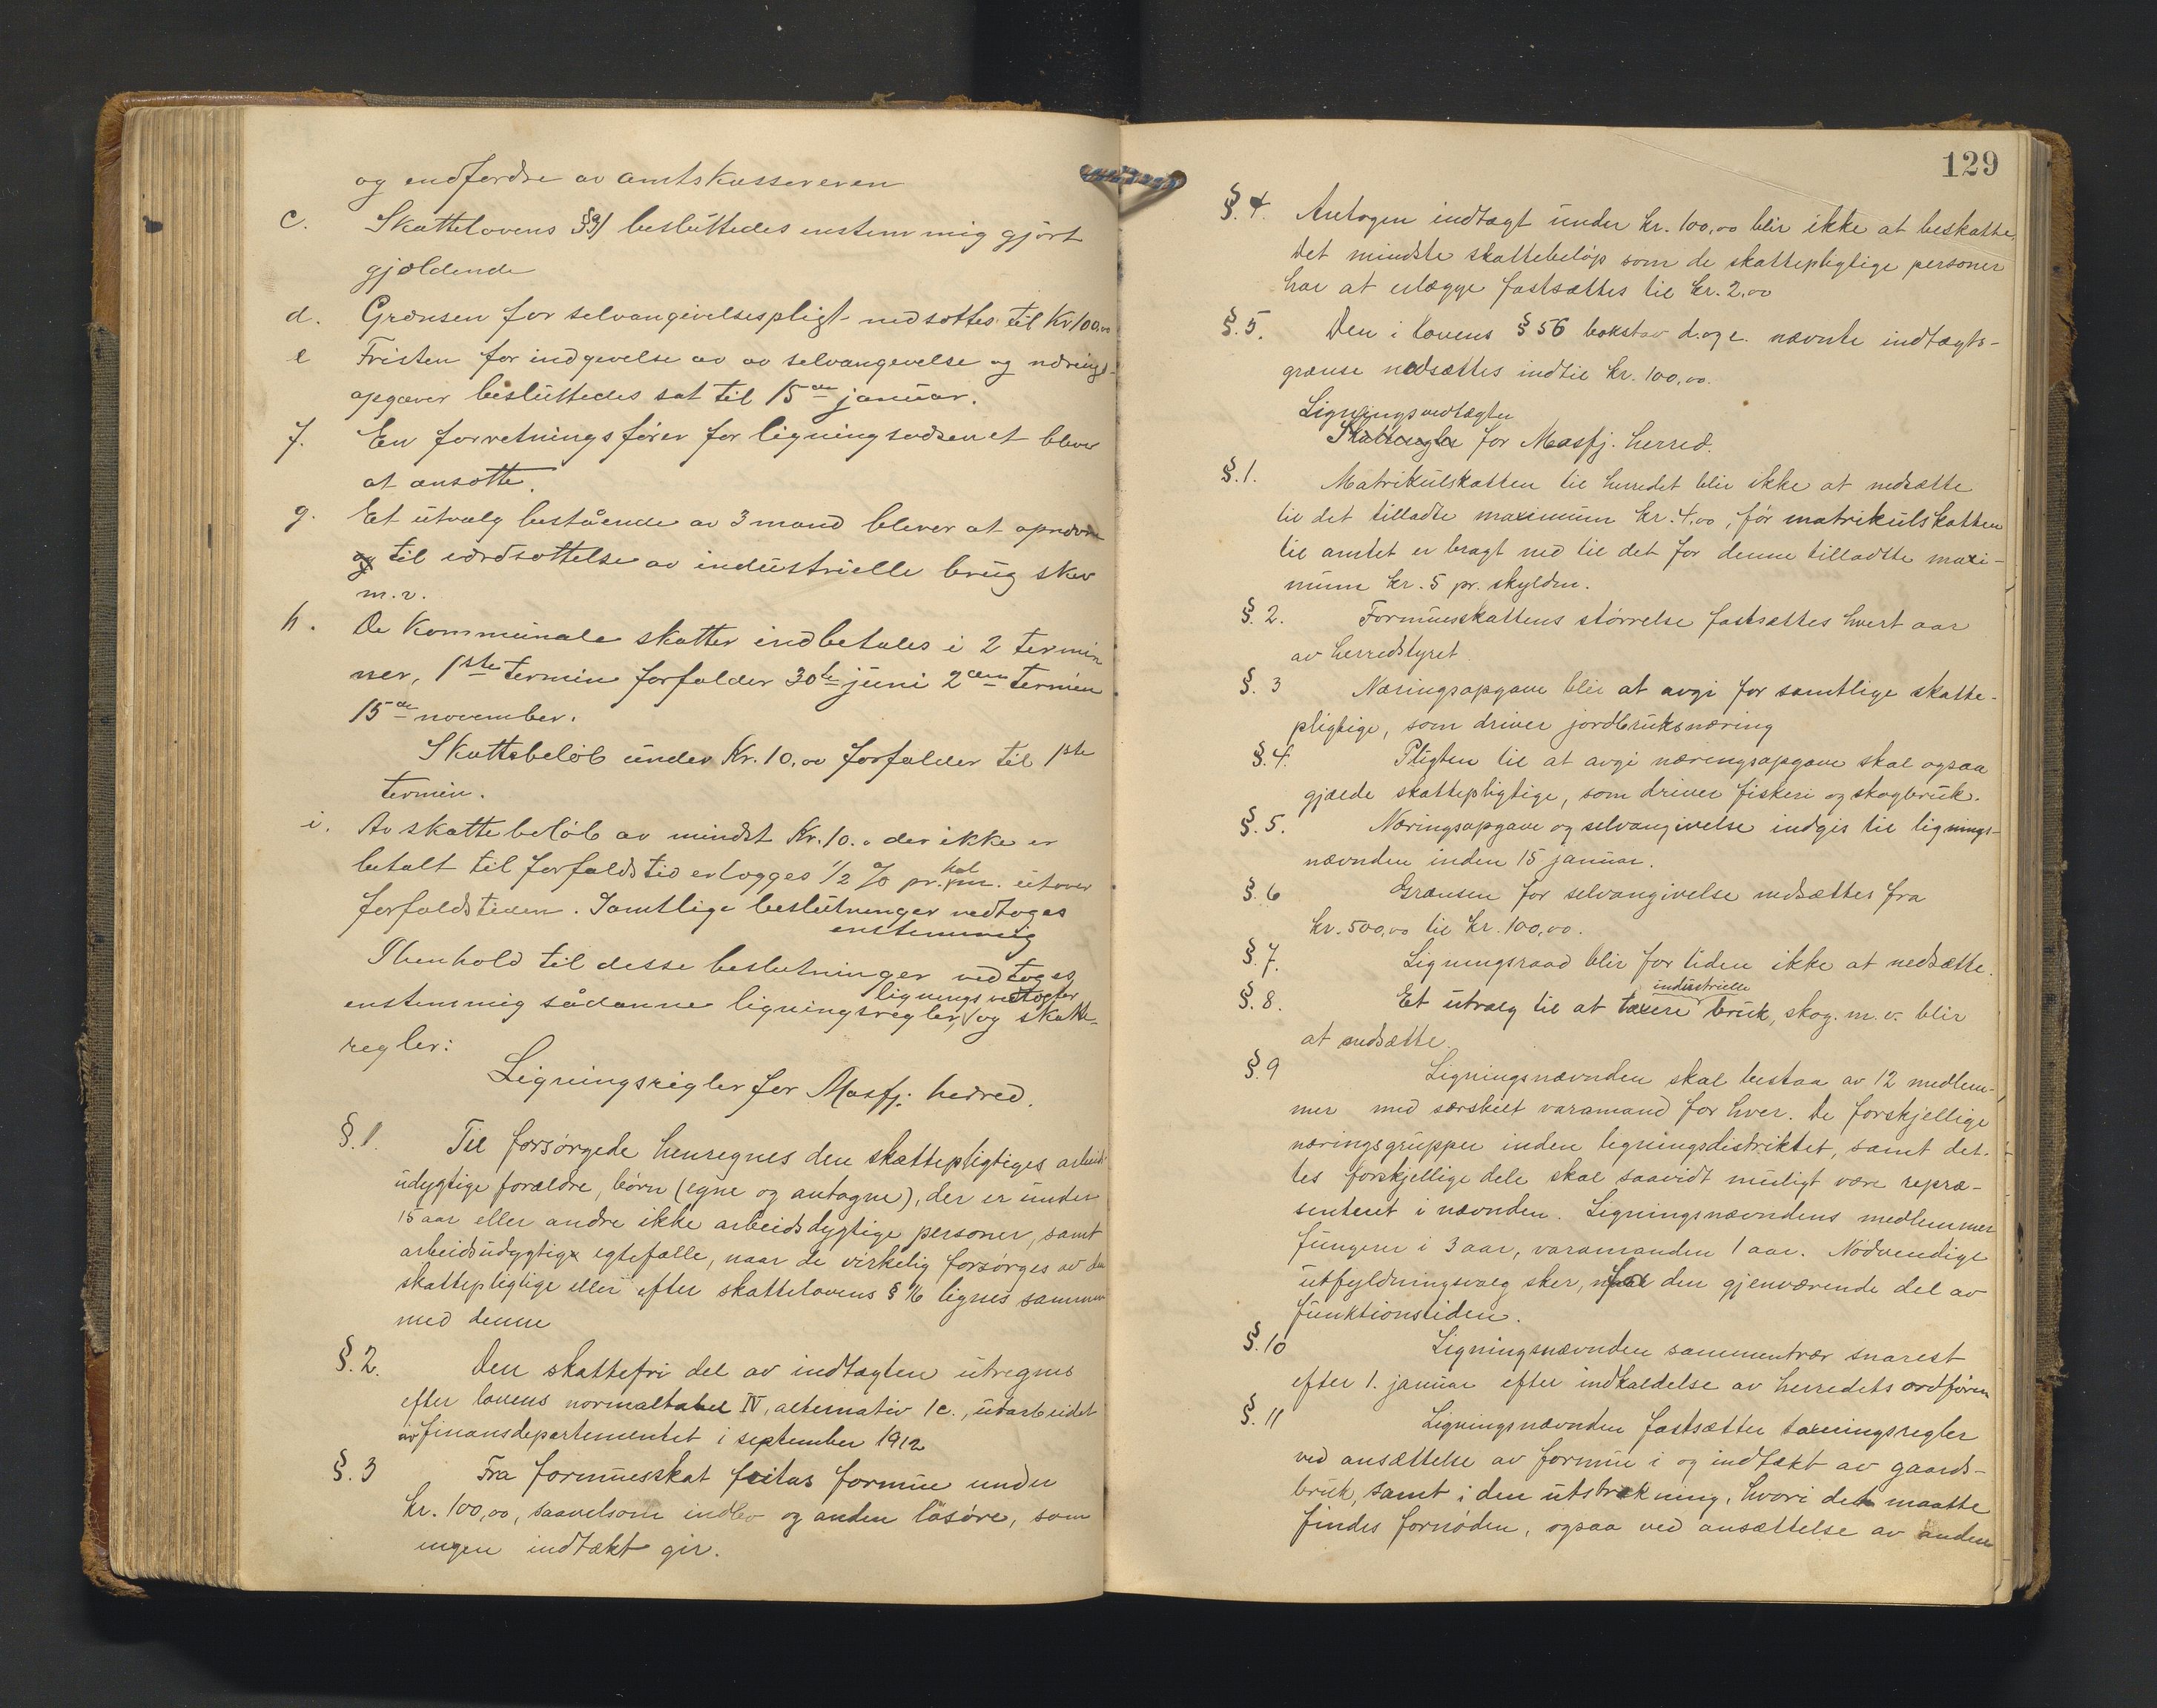 og endfordre av amtskassereren
c. Skattelovens § 91 besluttedes enstemmig gjort
gjældende
d. Grænsen for selvangivelsespligt nedsættes til Kr 100,00
e Fristen for indgevelse av av selvangevelse og nærings-
opgaver besluttedes sat til 15de januar.
f. En forretningsfører for ligningsvæsenet blever
at ansætte.
g. Et utvalg bestående av 3 mand blever at opnævne
og til værdsættelse av industrielle brug skov
m.v.
h. De kommunale skatter indbetales i 2 termin
ner, 1ste termin forfalder 30te juni 2den termin
15de november.
Skattebeløb under Kr. 10,00 forfalder til 1ste
termin.
i. Av skattebeløb av mindst Kr. 10.0 der ikke er
betalt til forfaldstid erlægges 1/2 % pr. kal. mn. utover
forfaldstiden. Samtlige beslutninger vedtoges
enstemmig
I henhold til desse beslutninger vedtoges
enstemmig sådanne ligningsregler, ligningsvedtægter og skatte-
regler:
Ligningsregler for Masfj. herred.
§. 1 Til forsørgede henregnes den skattepligtiges arbeids
udygtige forældre, børn (egne og antagne), der er under
15 aar eller andre ikke arbeidsdygtige personer, samt
arbeidsudygtige egtefælle, naar de virkelig forsørges av den
skattepligtige eller efter skattelovens § 16 lignes sammen
med denne
§. 2. Den skattefri del av indtægten utregnes
efter lovens normaltabel IV, alternativ 1c., utarbeidet
av finansdepartementet i september 1912
§. 3 Fra formuesskat fritas formue under
kr. 100,00, saavelsom indbo og anden løsøre, som
ingen indtækt gir.
129
§. 4. Antagen indtægt under kr. 100,00 blir ikke at beskatte.
Det mindste skattebeløp som de skattepligtige personer
har at erlægge fastsættes til kr. 2,00
§. 5. Den i lovens § 56 bokstav d. og e. nævnte indtægts-
grænse nedsættes indtil kr. 100,00.
Ligningsvedtægter
Skatteregler for Masfj. herred.
§. 1. Matrikulskatten til herredet blir ikke at nedsætte
til det tilladte maximum kr. 4,00, før matrikulskatten
til amtet er bragt ned til det for denne tilladte maxi-
mum kr. 5 pr. skyldm.
§. 2. Formuesskattens størrelse fastsættes hvert aar
av herredstyret
§. 3 Næringsopgave blir at avgi for samtlige skatte-
pligtige, som driver jordbruksnæring
§. 4. Pligten til at avgi næringsopgave skal ogsaa
gjælde skattepligtige, som driver fiskeri og skogbruk.
§. 5. Næringsopgave og selvangivelse indgis til lignings-
nævnden inden 15 januar.
§. 6 Grænsen for selvangivelse nedsættes fra
kr. 500,00 til kr. 100,00.
§. 7. Ligningsraad blir for tiden ikke at nedsætte.
§. 8. Et utvalg til at taxere industrielle bruk, skog. m.v. blir
at nedsætte.
§. 9 Ligningsnævnden skal bestaa av 12 medlem-
mer med særskilt varamand for hver. De forskjellige
næringsgrupper inden ligningsdistriktet, samt det-
tes forskjellige dele skal saavidt muligt være repræ-
sentert i nævnden. Ligningsnævndens medlemmer
fungerer i 3 aar, varamanden 1 aar. Nødvendige
utfyldningsvalg sker, for den gjenværende del av
funktionstiden.
§. 10 Ligningsnævnden sammentrær snarest
efter 1. januar efter indkaldelse av herredets ordfører
§. 11 Ligningsnævnden fastsætter taxeringsregler
ved ansættelse av formue i og indtækt av gaards-
bruk, samt i den utstrækning, hvori det maatte
findes fornøden, ogsaa ved ansættelse av anden